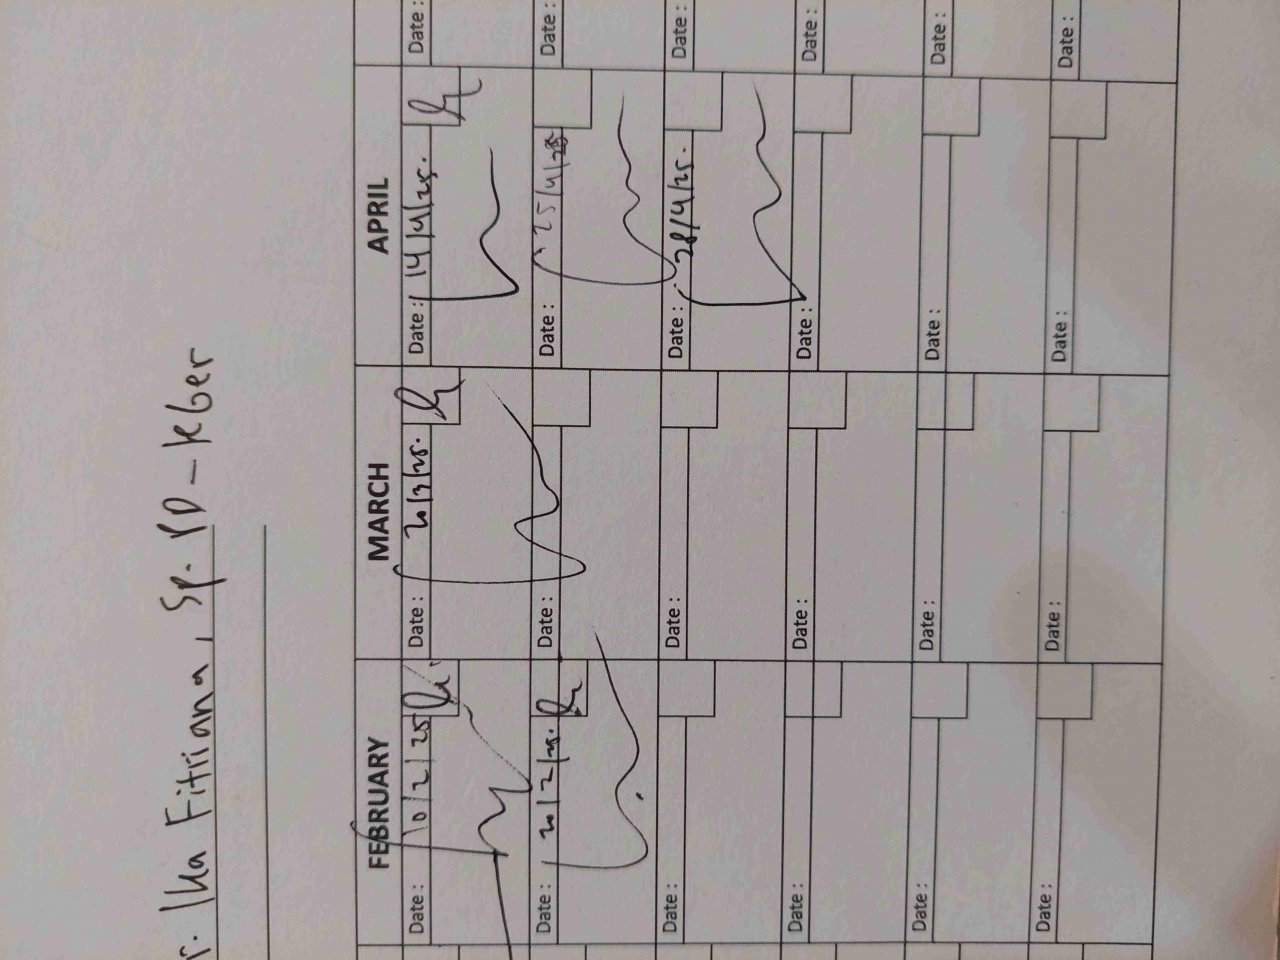 r. Ika Fitriana, Sp. PD-KGer
FEBRUARY MARCH APRIL
Date : 10/2/25 Date : 20/3/25. Date : 14/4/25. Date :
Date : 20/2/25. Date : Date : 25/4/25 Date :
Date : Date : Date : 28/4/25. Date :
Date : Date : Date : Date :
Date : Date : Date : Date :
Date : Date : Date : Date :